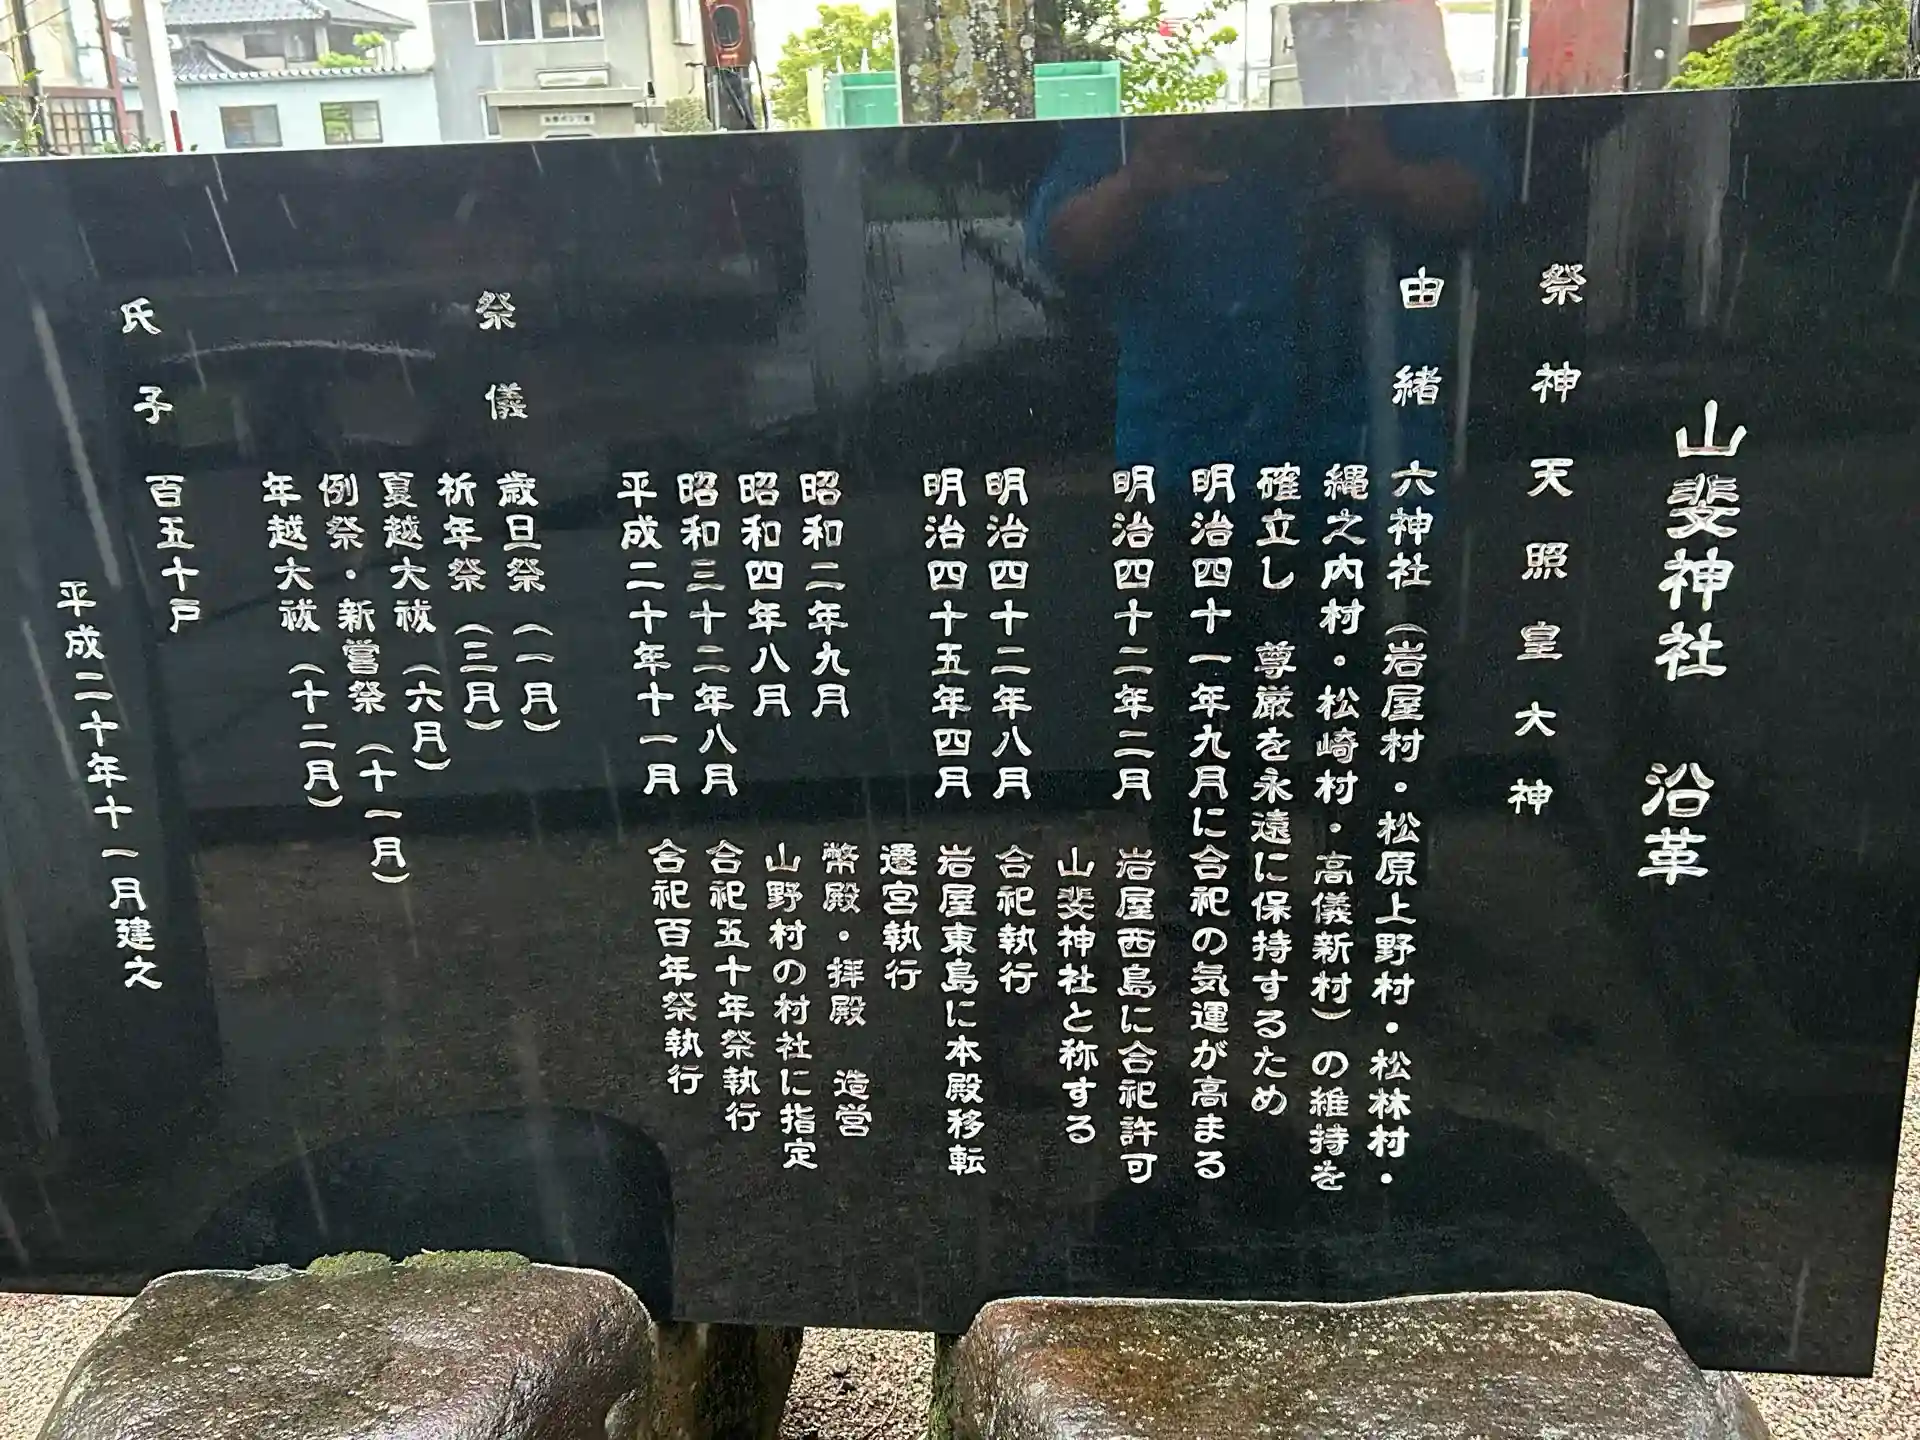 山斐神社　沿革
祭神　天照皇大神
由緒　六神社（岩屋村・松原上野村・松林村・
縄之内村・松崎村・高儀新村）の維持を
確立し　尊厳を永遠に保持するため
明治四十一年九月に合祀の気運が高まる
明治四十二年二月　岩屋西島に合祀許可
山斐神社と称する
明治四十二年八月　合祀執行
明治四十五年四月　岩屋東島に本殿移転
遷宮執行
昭和二年九月　幣殿・拝殿　造営
昭和四年八月　山野村の村社に指定
昭和三十二年八月　合祀五十年祭執行
平成二十年十一月　合祀百年祭執行
祭儀　歳旦祭（一月）
祈年祭（三月）
夏越大祓（六月）
例祭・新嘗祭（十一月）
年越大祓（十二月）
氏子　百五十戸
平成二十年十一月建之